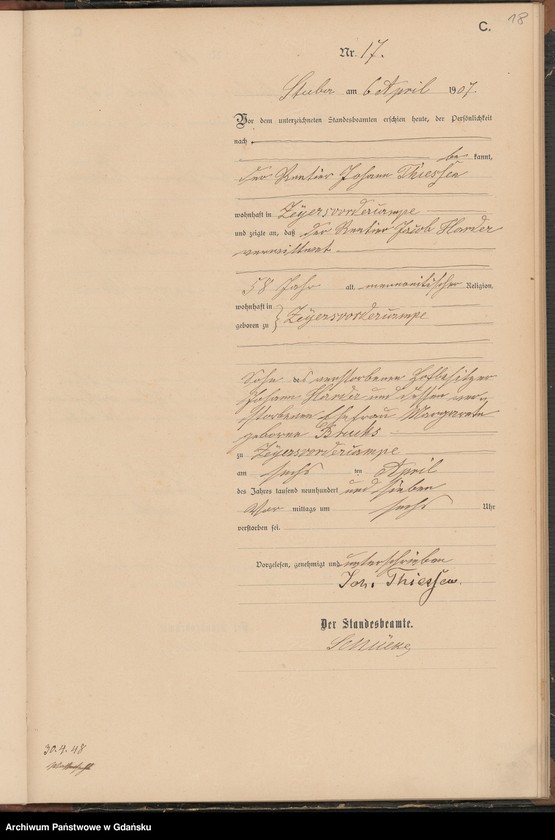 18
C.
Nr. 17.
Stuba am 6 April 1907.
Vor dem unterzeichneten Standesbeamten erschien heute, der Persönlichkeit
nach
be kannt,
der Rentier Johann Thiessen
wohnhaft in Zeyersvorderkampe
und zeigte an, daß der Rentier Jacob Harder
verwittwet
58 Jahr alt, mennonitischer Religion,
wohnhaft in
geboren zu } Zeyersvorderkampe
Sohn des verstorbenen Hofbesitzer
Johann Harder und dessen ver-
storbenen Ehefrau Margarete
geborne
zu Zeyersvorderkampe
am sechs ten April
des Jahres tausend neunhundert und sieben
Vor mittags um sechs Uhr
verstorben sei.
Vorgelesen, genehmigt und unterschrieben
Joh. Thiessen.
Der Standesbeamte.
30.4.48
Archiwum Państwowe w Gdańsku